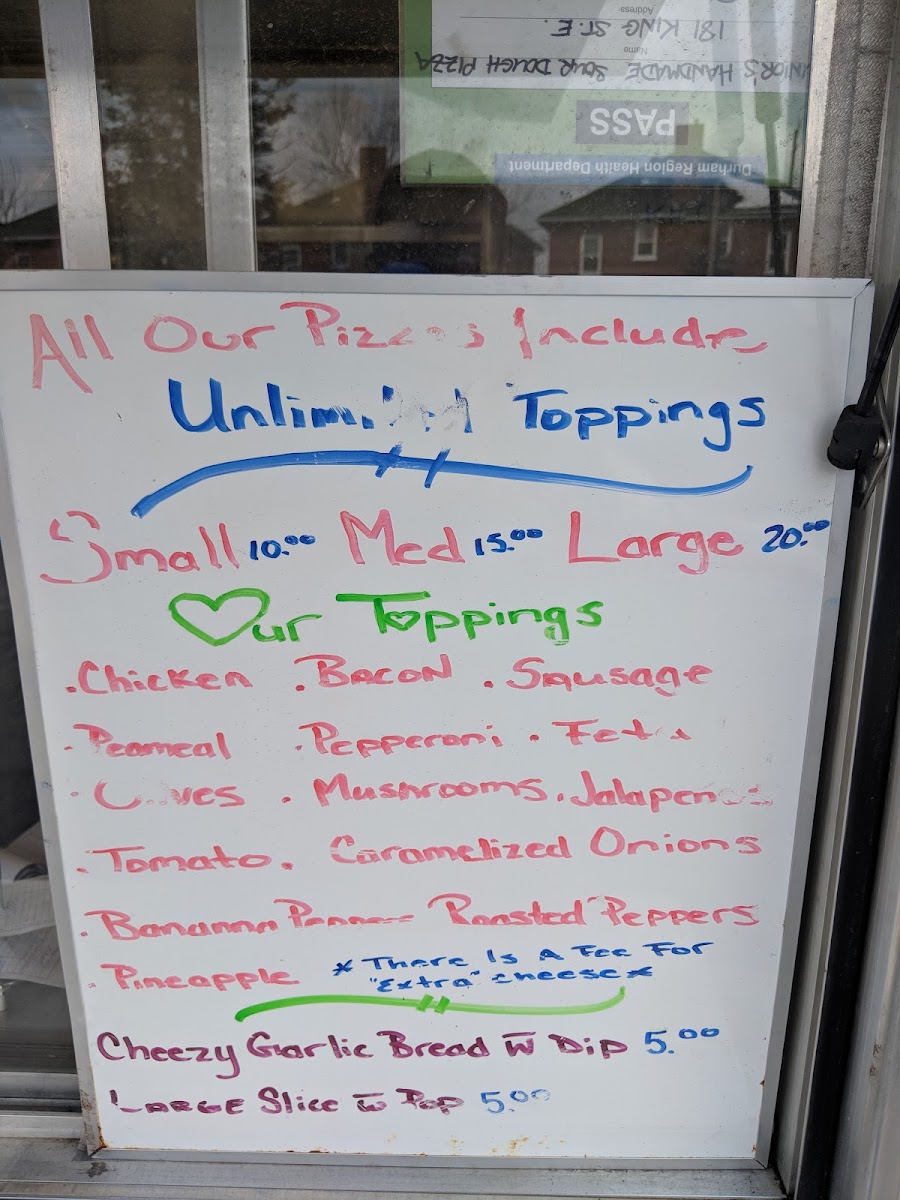 181 KING ST. E.
Address
NIOR'S HANDMADE SOUR DOUGH PIZZA
Name
PASS
Durham Region Health Department
All Our Pizzas Include
Unlimited Toppings
Small 10.00 Med 15.00 Large 20.00
Our Toppings
. Chicken . Bacon . Sausage
. Peameal . Pepperoni . Feta
. Olives . Mushrooms . Jalapenos
. Tomato . Caramelized Onions
. Bananna Pepper Roasted Peppers
. Pineapple * There Is A Fee For
"Extra" cheese *
Cheezy Garlic Bread w Dip 5.00
LARGE Slice w Pop 5.00